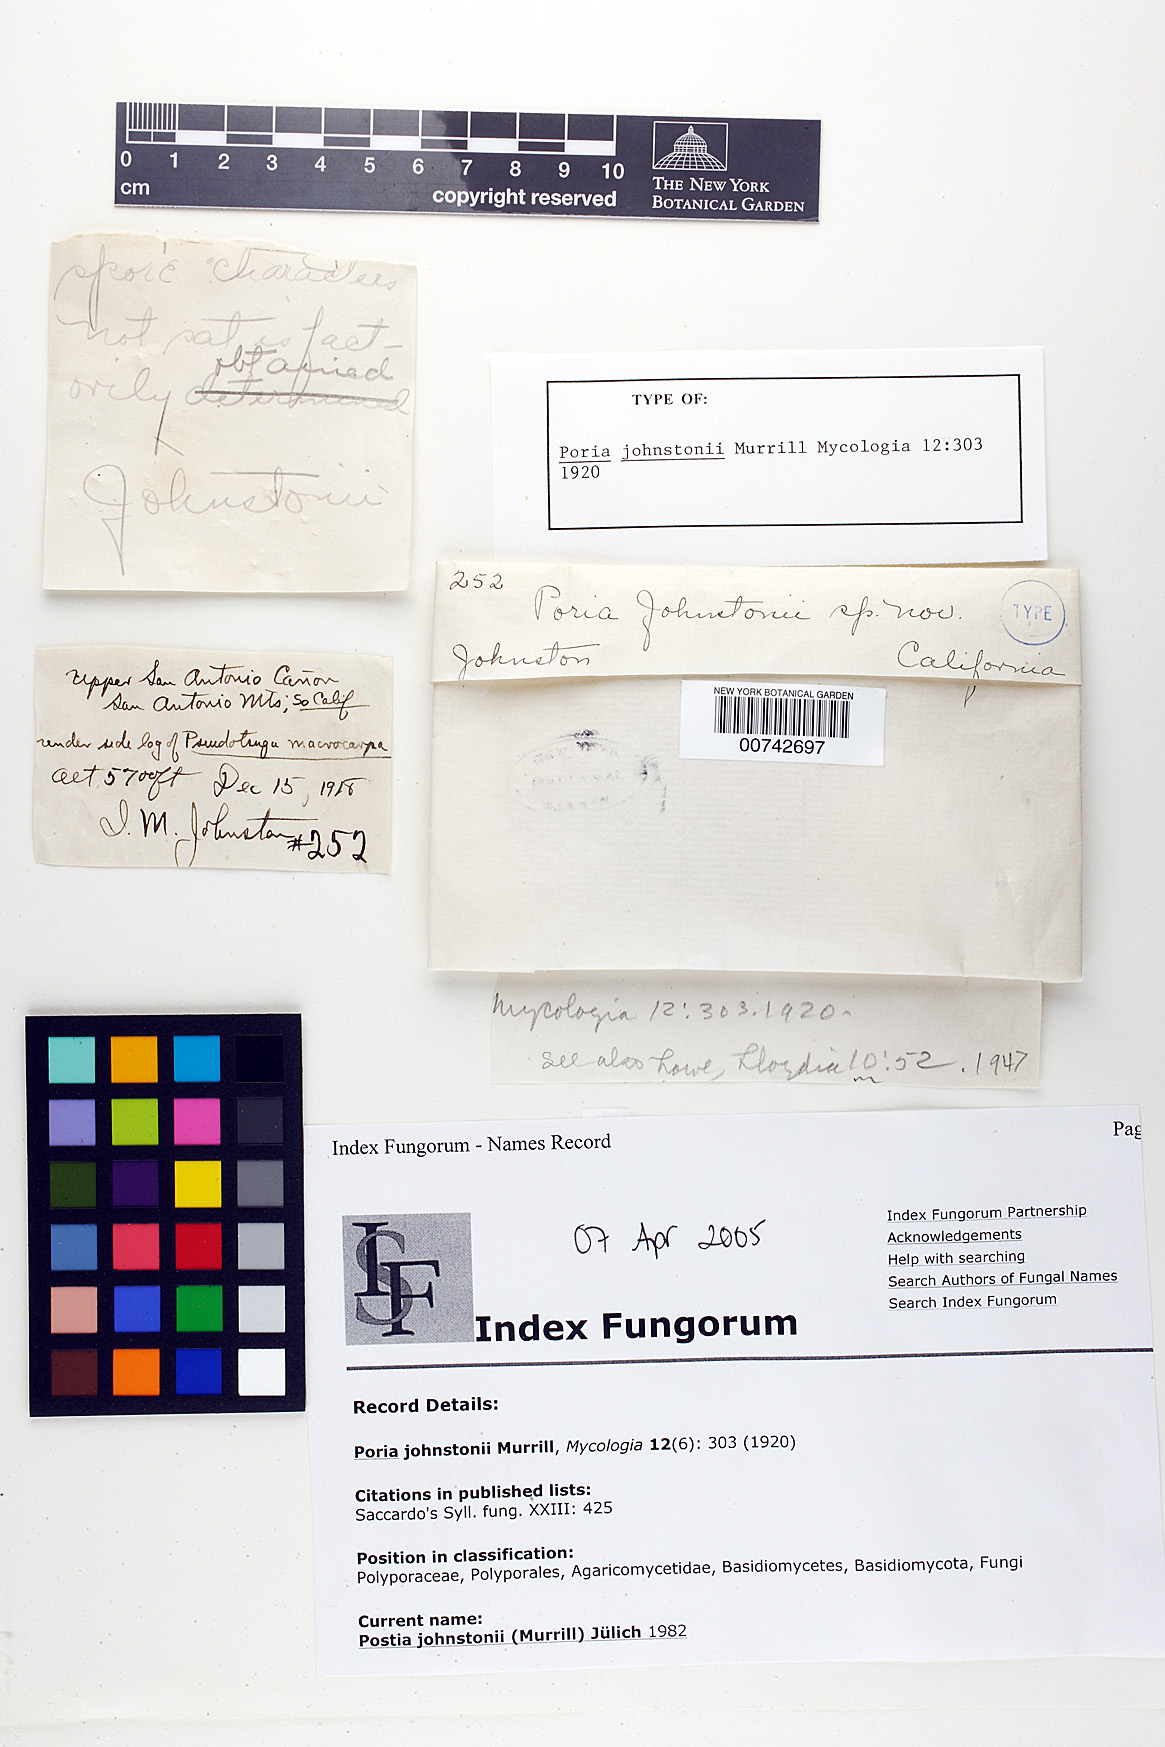 0 1 2 3 4 5 6 7 8 9 10
cm
copyright reserved
THE NEW YORK
BOTANICAL GARDEN
spore characters
not satisfact-
obtained
orily determined
Johnstonii
TYPE OF:
Poria johnstonii Murrill Mycologia 12:303
1920
252
Poria Johnstonii sp. nov.
TYPE
Johnston
California
NEW YORK BOTANICAL GARDEN
00742697
Upper San Antonio Cañon
San Antonio Mts; So Calif
under side log of Pseudotsuga macrocarpa
alt 5700ft Dec 15, 1918
I. M. Johnston #252
Mycologia 12:303.1920.
See also Lowe, Lloydia 10:52. 1947
Index Fungorum - Names Record
Pag
07 Apr 2005
Index Fungorum Partnership
Acknowledgements
Help with searching
Search Authors of Fungal Names
Search Index Fungorum
ISF
Index Fungorum
Record Details:
Poria johnstonii Murrill, Mycologia 12(6): 303 (1920)
Citations in published lists:
Saccardo's Syll. fung. XXIII: 425
Position in classification:
Polyporaceae, Polyporales, Agaricomycetidae, Basidiomycetes, Basidiomycota, Fungi
Current name:
Postia johnstonii (Murrill) Jülich 1982